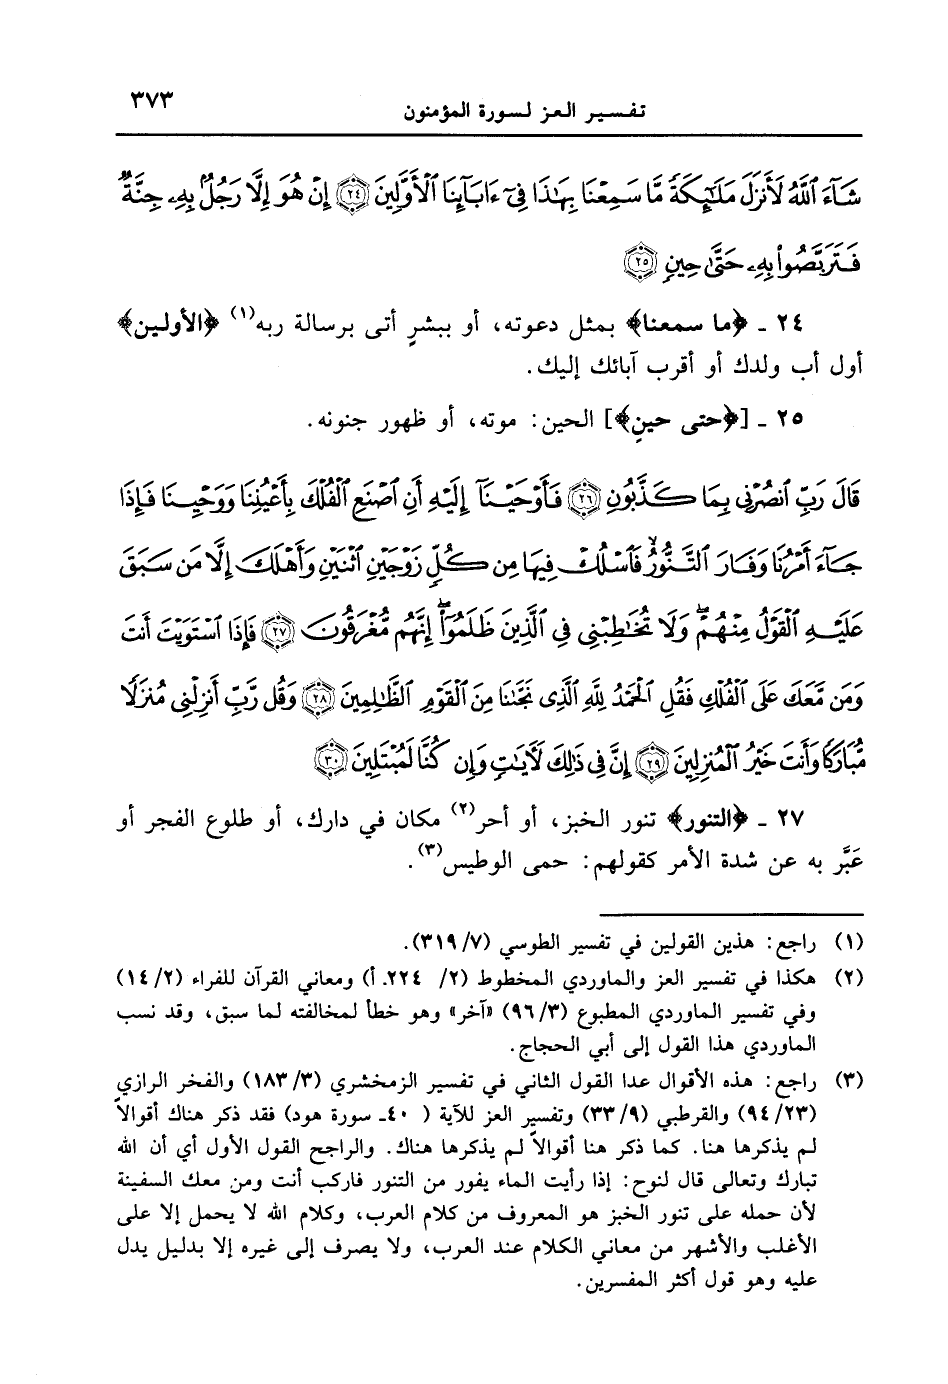 ٣٧٣
تفسير العز لسورة المؤمنون
شَآءَ ٱللَّهُ لَأَنزَلَ مَلَٰٓئِكَةً مَّا سَمِعْنَا بِهَٰذَا فِىٓ ءَابَآئِنَا ٱلْأَوَّلِينَ ٢٤ إِنْ هُوَ إِلَّا رَجُلٌۢ بِهِۦ جِنَّةٌ
فَتَرَبَّصُوا۟ بِهِۦ حَتَّىٰ حِينٍ ٢٥
٢٤ ـ ﴿ما سمعنا﴾ بمثل دعوته، أو ببشرٍ أتى برسالة ربه(١) ﴿الأولين﴾
أول أب ولدك أو أقرب آبائك إليك.
٢٥ ـ [﴿حتى حينٍ﴾] الحين: موته، أو ظهور جنونه.
قَالَ رَبِّ ٱنصُرْنِى بِمَا كَذَّبُونِ ٢٦ فَأَوْحَيْنَآ إِلَيْهِ أَنِ ٱصْنَعِ ٱلْفُلْكَ بِأَعْيُنِنَا وَوَحْيِنَا فَإِذَا
جَآءَ أَمْرُنَا وَفَارَ ٱلتَّنُّورُ ۙ فَٱسْلُكْ فِيهَا مِن كُلٍّ زَوْجَيْنِ ٱثْنَيْنِ وَأَهْلَكَ إِلَّا مَن سَبَقَ
عَلَيْهِ ٱلْقَوْلُ مِنْهُمْ ۖ وَلَا تُخَٰطِبْنِى فِى ٱلَّذِينَ ظَلَمُوٓا۟ ۖ إِنَّهُم مُّغْرَقُونَ ٢٧ فَإِذَا ٱسْتَوَيْتَ أَنتَ
وَمَن مَّعَكَ عَلَى ٱلْفُلْكِ فَقُلِ ٱلْحَمْدُ لِلَّهِ ٱلَّذِى نَجَّىٰنَا مِنَ ٱلْقَوْمِ ٱلظَّٰلِمِينَ ٢٨ وَقُل رَّبِّ أَنزِلْنِى مُنزَلًا
مُّبَارَكًا وَأَنتَ خَيْرُ ٱلْمُنزِلِينَ ٢٩ إِنَّ فِى ذَٰلِكَ لَءَايَٰتٍ وَإِن كُنَّا لَمُبْتَلِينَ ٣٠
٢٧ ـ ﴿التنور﴾ تنور الخبز، أو أحر(٢) مكان في دارك، أو طلوع الفجر أو
عَبَّر به عن شدة الأمر كقولهم: حمى الوطيس(٣).
(١) راجع: هذين القولين في تفسير الطوسي (٣١٩/٧).
(٢) هكذا في تفسير العز والماوردي المخطوط (٢/ ٢٢٤. أ) ومعاني القرآن للفراء (١٤/٢)
وفي تفسير الماوردي المطبوع (٩٦/٣) «آخر» وهو خطأ لمخالفته لما سبق، وقد نسب
الماوردي هذا القول إلى أبي الحجاج.
(٣) راجع: هذه الأقوال عدا القول الثاني في تفسير الزمخشري (١٨٣/٣) والفخر الرازي
(٩٤/٢٣) والقرطبي (٣٣/٩) وتفسير العز للآية ( ٤٠ـ سورة هود) فقد ذكر هناك أقوالاً
لم يذكرها هنا. كما ذكر هنا أقوالاً لم يذكرها هناك. والراجح القول الأول أي أن الله
تبارك وتعالى قال لنوح: إذا رأيت الماء يفور من التنور فاركب أنت ومن معك السفينة
لأن حمله على تنور الخبز هو المعروف من كلام العرب، وكلام الله لا يحمل إلا على
الأغلب والأشهر من معاني الكلام عند العرب، ولا يصرف إلى غيره إلا بدليل يدل
عليه وهو قول أكثر المفسرين.